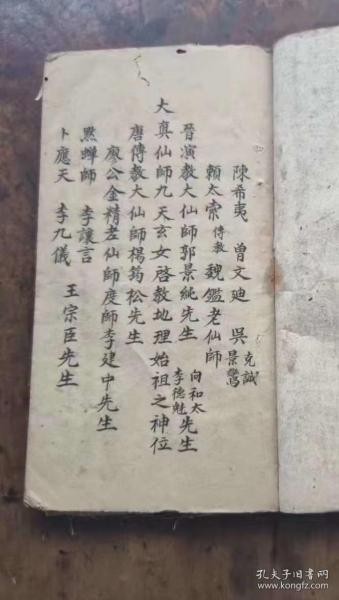 陳希夷 曾文廸 吳克誠景鸞
賴太素傳教 魏鑑老仙師
晉演教大仙師郭景純先生 向和太李德魁先生
大真仙師九天玄女啓教地理始祖之神位
唐傳教大仙師楊筠松先生
廖公金精老仙師度師李建中先生
黙蟬師 李讓言
卜應天 李九儀 王宗臣先生
孔夫子旧书网